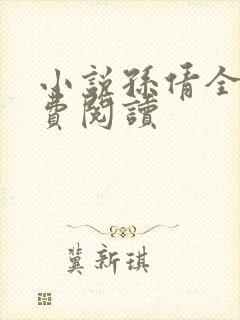 小說孫倩全
費閱讀
冀新琪